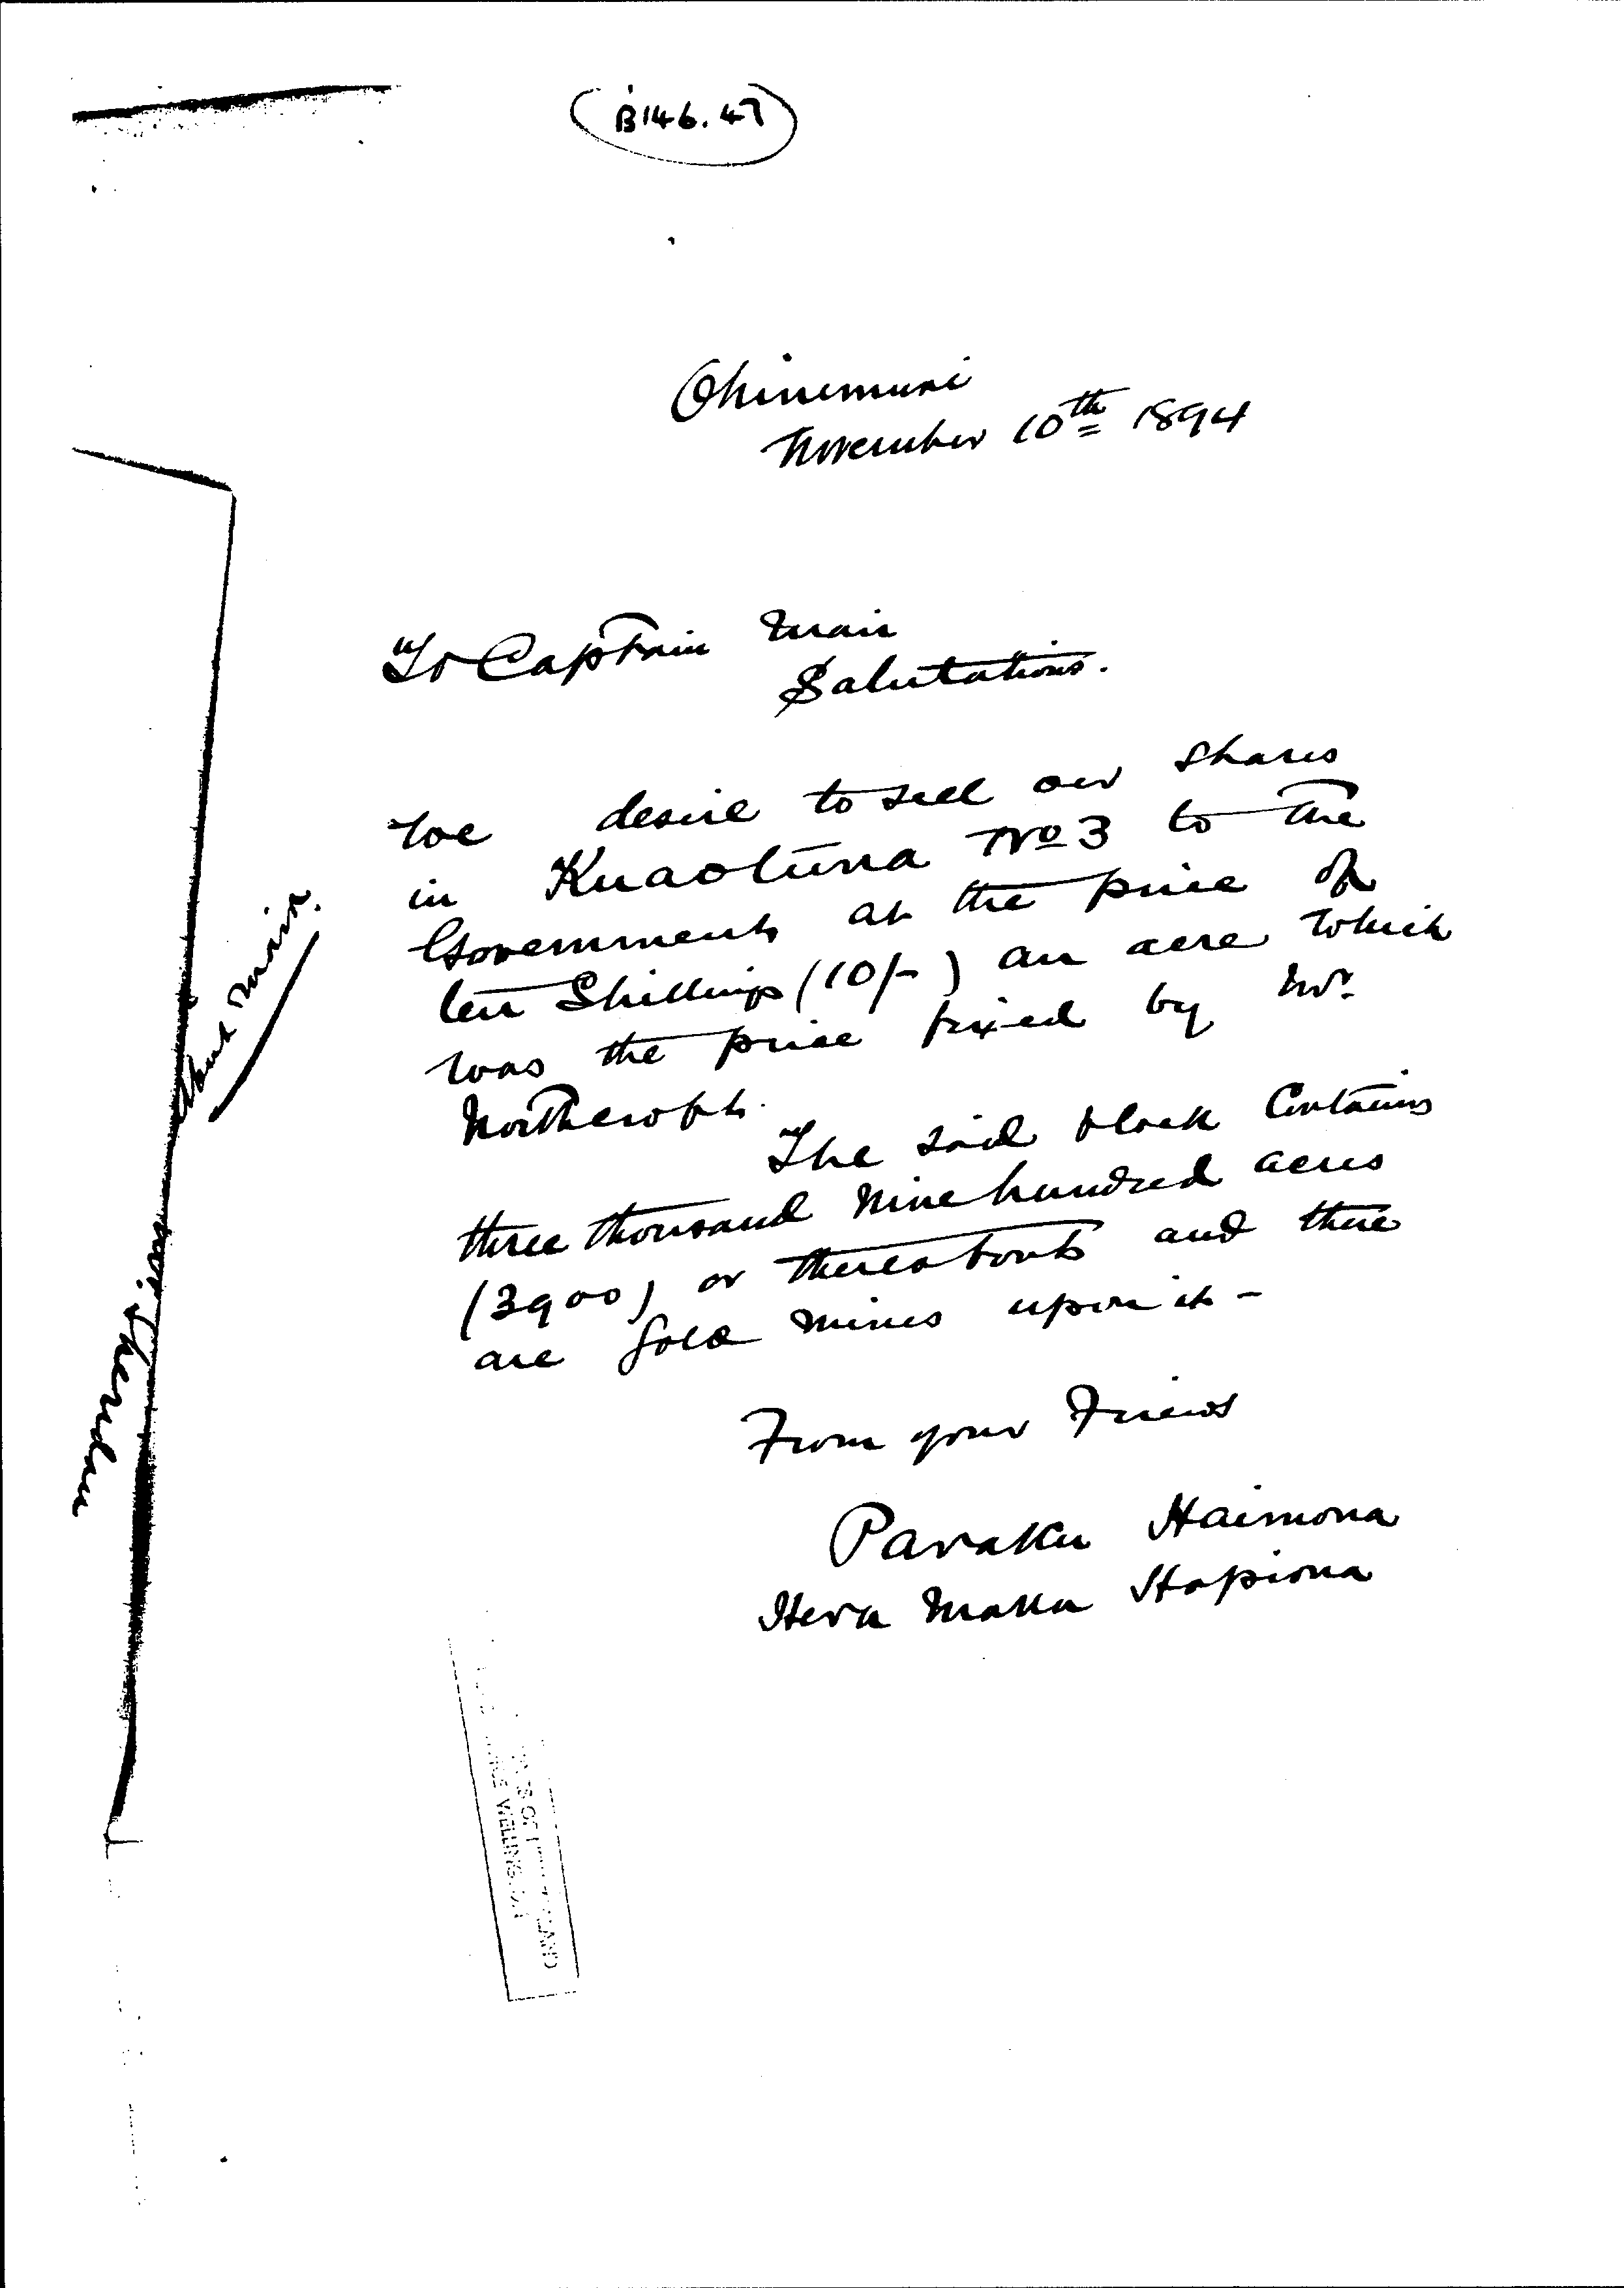 B146.47
Ohinemuri
November 10th 1894
To Captain Mair
Salutations.
We desire to sell our shares
in Kuaotuna No 3 to the
Government at the price of
ten Shillings (10/-) an acre which
was the price fixed by Mr.
Northcroft.
The said block Contains
three thousand nine hundred acres
(3900) or thereabouts and there
are gold mines upon it -
From your Friends
Paraku Haimona
Hera Maka Hapiona
Mr. Sheridan